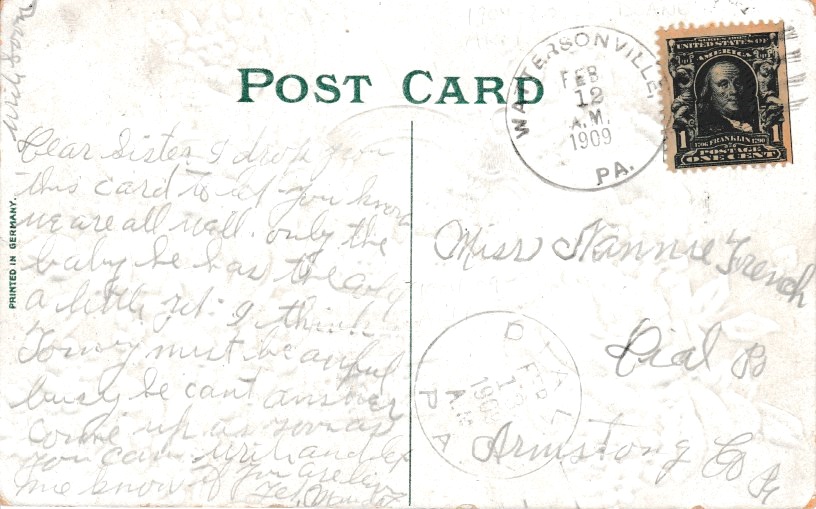 POST CARD
WATTERSONVILLE,
FEB
12
A.M.
1909
PA.
SERIES 1902
UNITED STATES OF
AMERICA
1 1
1706 FRANKLIN 1790
POSTAGE
ONE CENT
PRINTED IN GERMANY.
Write soon
Dear Sister I drop you
this card to let you know
we are all well. only the
baby he has the
a little yet. I think
Tomy must be awful
busy he cant answer
come up as soon as
you can. write and let
me know if you are
yet.
Miss Nannie French
Dial
Armstong Co
DIAL
FEB
A.M.
1909
PA